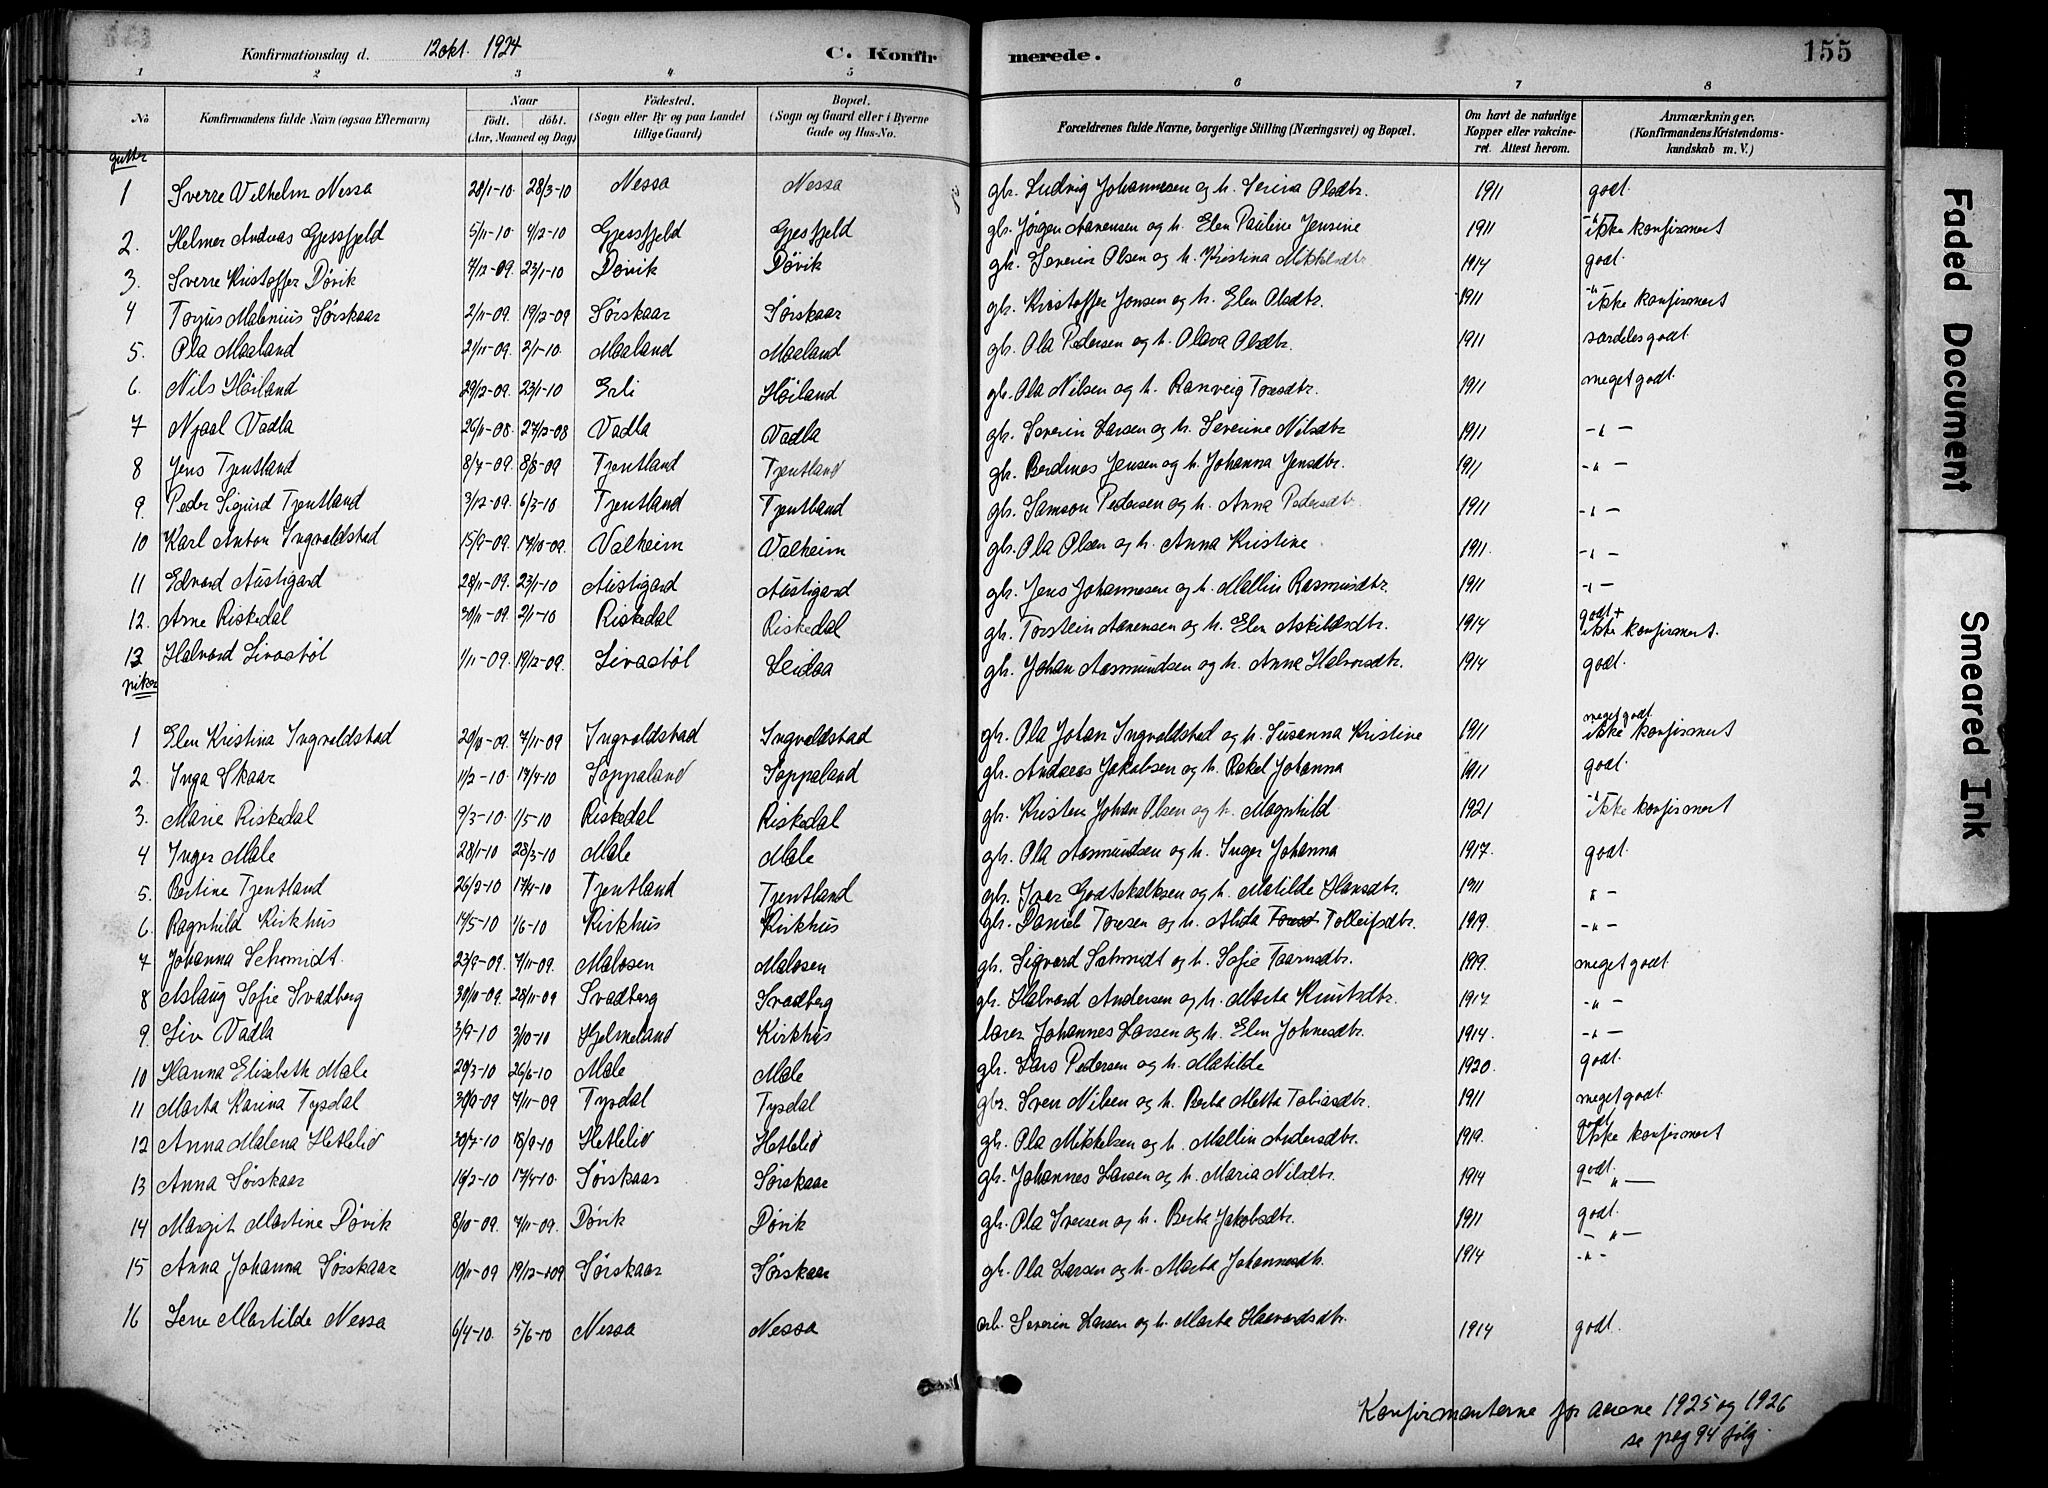 Konfirmationsdag d. 12 okt. 1924 C. Konfirmerede. 155
1 2 3 4 5 6 7 8
No Konfirmandens fulde Navn (ogsaa Efternavn) Naar født. døbt. (Aar, Maaned og Dag) Fødested. (Sogn eller By og paa Landet tillige Gaard) Bopæl. (Sogn og Gaard eller i Byerne Gade og Hus-No. Forældrenes fulde Navne, borgerlige Stilling (Næringsvei) og Bopæl. Om havt de naturlige Kopper eller vakcineret. Attest herom. Anmærkninger. (Konfirmandens Kristendomskundskab m. V.)
gutter
1 Sverre Vilhelm Nessa 28/1-10. 28/3-10 Nessa Nessa gbr. Ludvig Johannesen og h. Serina Olsdtr. 1911 godt.
2. Helmer Andreas Gjessfjeld 5/11-10 4/12-10 Gjessfjeld Gjesfjeld gbr. Jørgen Aanensen og h. Elen Pauline Jensine 1911 -"- ikke konfirmert
3. Sverre Kristoffer Døvik 7/12-09. 23/1-10 Døvik Døvik gbr. Severin Olsen og h. Kristina Mikkelsdtr 1914 godt.
4 Torjus Malenius Sørskaar 2/11-09. 19/12-09 Sørskaar Sørskaar gbr. Kristoffer Jonsen og h. Elen Olsdtr. 1911 -"- ikke konfirmert
5. Ola Maaland 21/11-09. 2/1-10. Maaland Maaland gbr. Ola Pedersen og h. Olava Olsdtr. 1911 særdeles godt.
6. Nils Høiland 29/12-09. 23/1-10 Erli Høiland gbr. Ola Nilsen og h. Ranveig Toresdtr. 1911 meget godt.
7 Njaal Vadla 26/11-08. 27/12-08 Vadla Vadla gbr. Severin Larsen og h. Severine Nilsdtr 1911 -"-
8 Jens Tjentland 8/7-09. 8/8-09 Tjentland Tjentland gbr. Berdines Jensen og h. Johanna Jensdtr. 1911 -"-
9. Peder Sigurd Tjentland 3/12-09. 6/3-10 Tjentland Tjentland gbr. Samson Pedersen og h. Anna Pedersdtr. 1911 -"-
10 Karl Anton Ingvaldstad 15/9-09. 17/10-09. Valheim Valheim gbr. Ola Olsen og h. Anna Kristine 1911. -"-
11 Edvard Austigard 28/11-09. 23/1-10 Austigard Austigard gbr. Jens Johannesen og h. Mallin Rasmusdtr. 1911 -"-
12. Arne Riskedal 30/11-09. 2/1-10 Riskedal Riskedal gbr. Torstein Aanensen og h. Elen Askildsdtr. 1914 godt+ ikke konfirmert.
13 Halvard Livastøl 1/11-09. 19/12-09. Livastøl Leidaa gbr. Johan Aasmundsen og h. Anna Halvorsdtr. 1914 godt.
piker
1 Elen Kristina Ingvaldstad 20/10-09. 7/11-09 Ingvaldstad Ingvaldstad gbr. Ola Johan Ingvaldstad og h. Susanna Kristine 1911 meget godt ikke konfirmert
2. Inga Skaar 11/2-10. 17/4-10 Soppaland Soppaland gbr. Andreas Jakobsen og h. Rakel Johanna 1911 godt.
3. Marie Riskedal 9/3-10. 1/5-10 Riskedal Riskedal gbr. Kristen Johan Olsen og h. Magnhild 1921 -"- ikke konfirmert
4 Inger Mæle 28/1-10 28/3-10 Mæle Mæle gbr. Ola Aasmundsen og h. Inger Johanna 1917. godt.
5. Bertine Tjentland 26/2-10 17/4-10 Tjentland Tjentland gbr. Ivar Godtskalksen og h. Matilde Hansdtr. 1911 " -
6. Ragnhild Kirkhus 17/5-10 1/6-10 Kirkhus Kirkhus gbr. Daniel Toresen og h. Alida Toresd Tolleifsdtr. 1919. -"-
7 Johanna Schmidt. 23/9-09. 7/11-09. Malosen Malosen gbr. Sigvard Schmidt og h. Sofie Taarnsdtr. 1919. meget godt.
8 Aslaug Sofie Svadberg 30/10-09. 28/11-09 Svadberg Svadberg gbr. Halvard Andersen og h. Marta Knutsdtr. 1914 -"-
9. Liv Vadla 3/9-10 3/10-10 Hjelmeland Kirkhus lærer Johannes Larsen og h. Elen Johnesdtr. 1914. -"-
10 Hanna Elisebeth Mæle 20/3-10 26/6-10 Mæle Mæle gbr. Lars Pedersen og h. Matilde 1920. godt.
11 Marta Karina Tysdal 30/9-09 7/11-09 Tysdal Tysdal gbr. Sven Nilsen og h. Berta Metta Tobiasdtr. 1911 meget godt.
12 Anna Malena Hetlelid 30/7-10 18/9-10 Hetlelid Hetlelid gbr. Ola Mikkelsen og h. Mallin Andersdtr. 1919. godt. ikke konfirmert
13 Anna Sørskaar 16/2-10 17/4-10. Sørskaar Sørskaar gbr. Johannes Larsen og h. Maria Nilsdtr. 1914 godt. - " -
14 Margit Martine Døvik 8/10-09. 7/11-09. Døvik Døvik gbr. Ola Iversen og h. Berta Jakobsdtr. 1911 godt. - " -
15 Anna Johanna Sørskaar 10/11-09 19/12-09 Sørskaar Sørskaar gbr. Ola Larsen og h. Marta Johannesdtr. 1914 -"-
16 Lene Martilde Nessa 6/4-10. 5/6-10 Nessa Nessa arb. Severin Larsen og h. Marta Haavardsdtr. 1914 godt.
Konfirmanterne for aarene 1925 og 1926
se pag 94 følg.
Faded Document
Smeared Ink